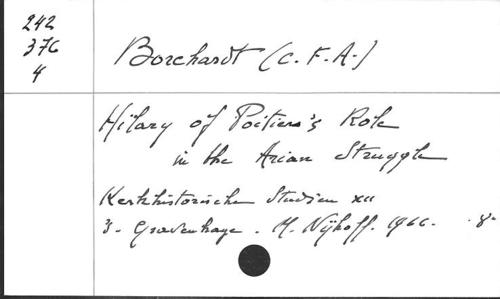 242
376
4
Borchardt (C. F. A.)
Hilary of Poitiers's Role
in the Arian Struggle
Kerkhistorische Studien XII
's-Gravenhage. M. Nijhoff. 1966. 8°